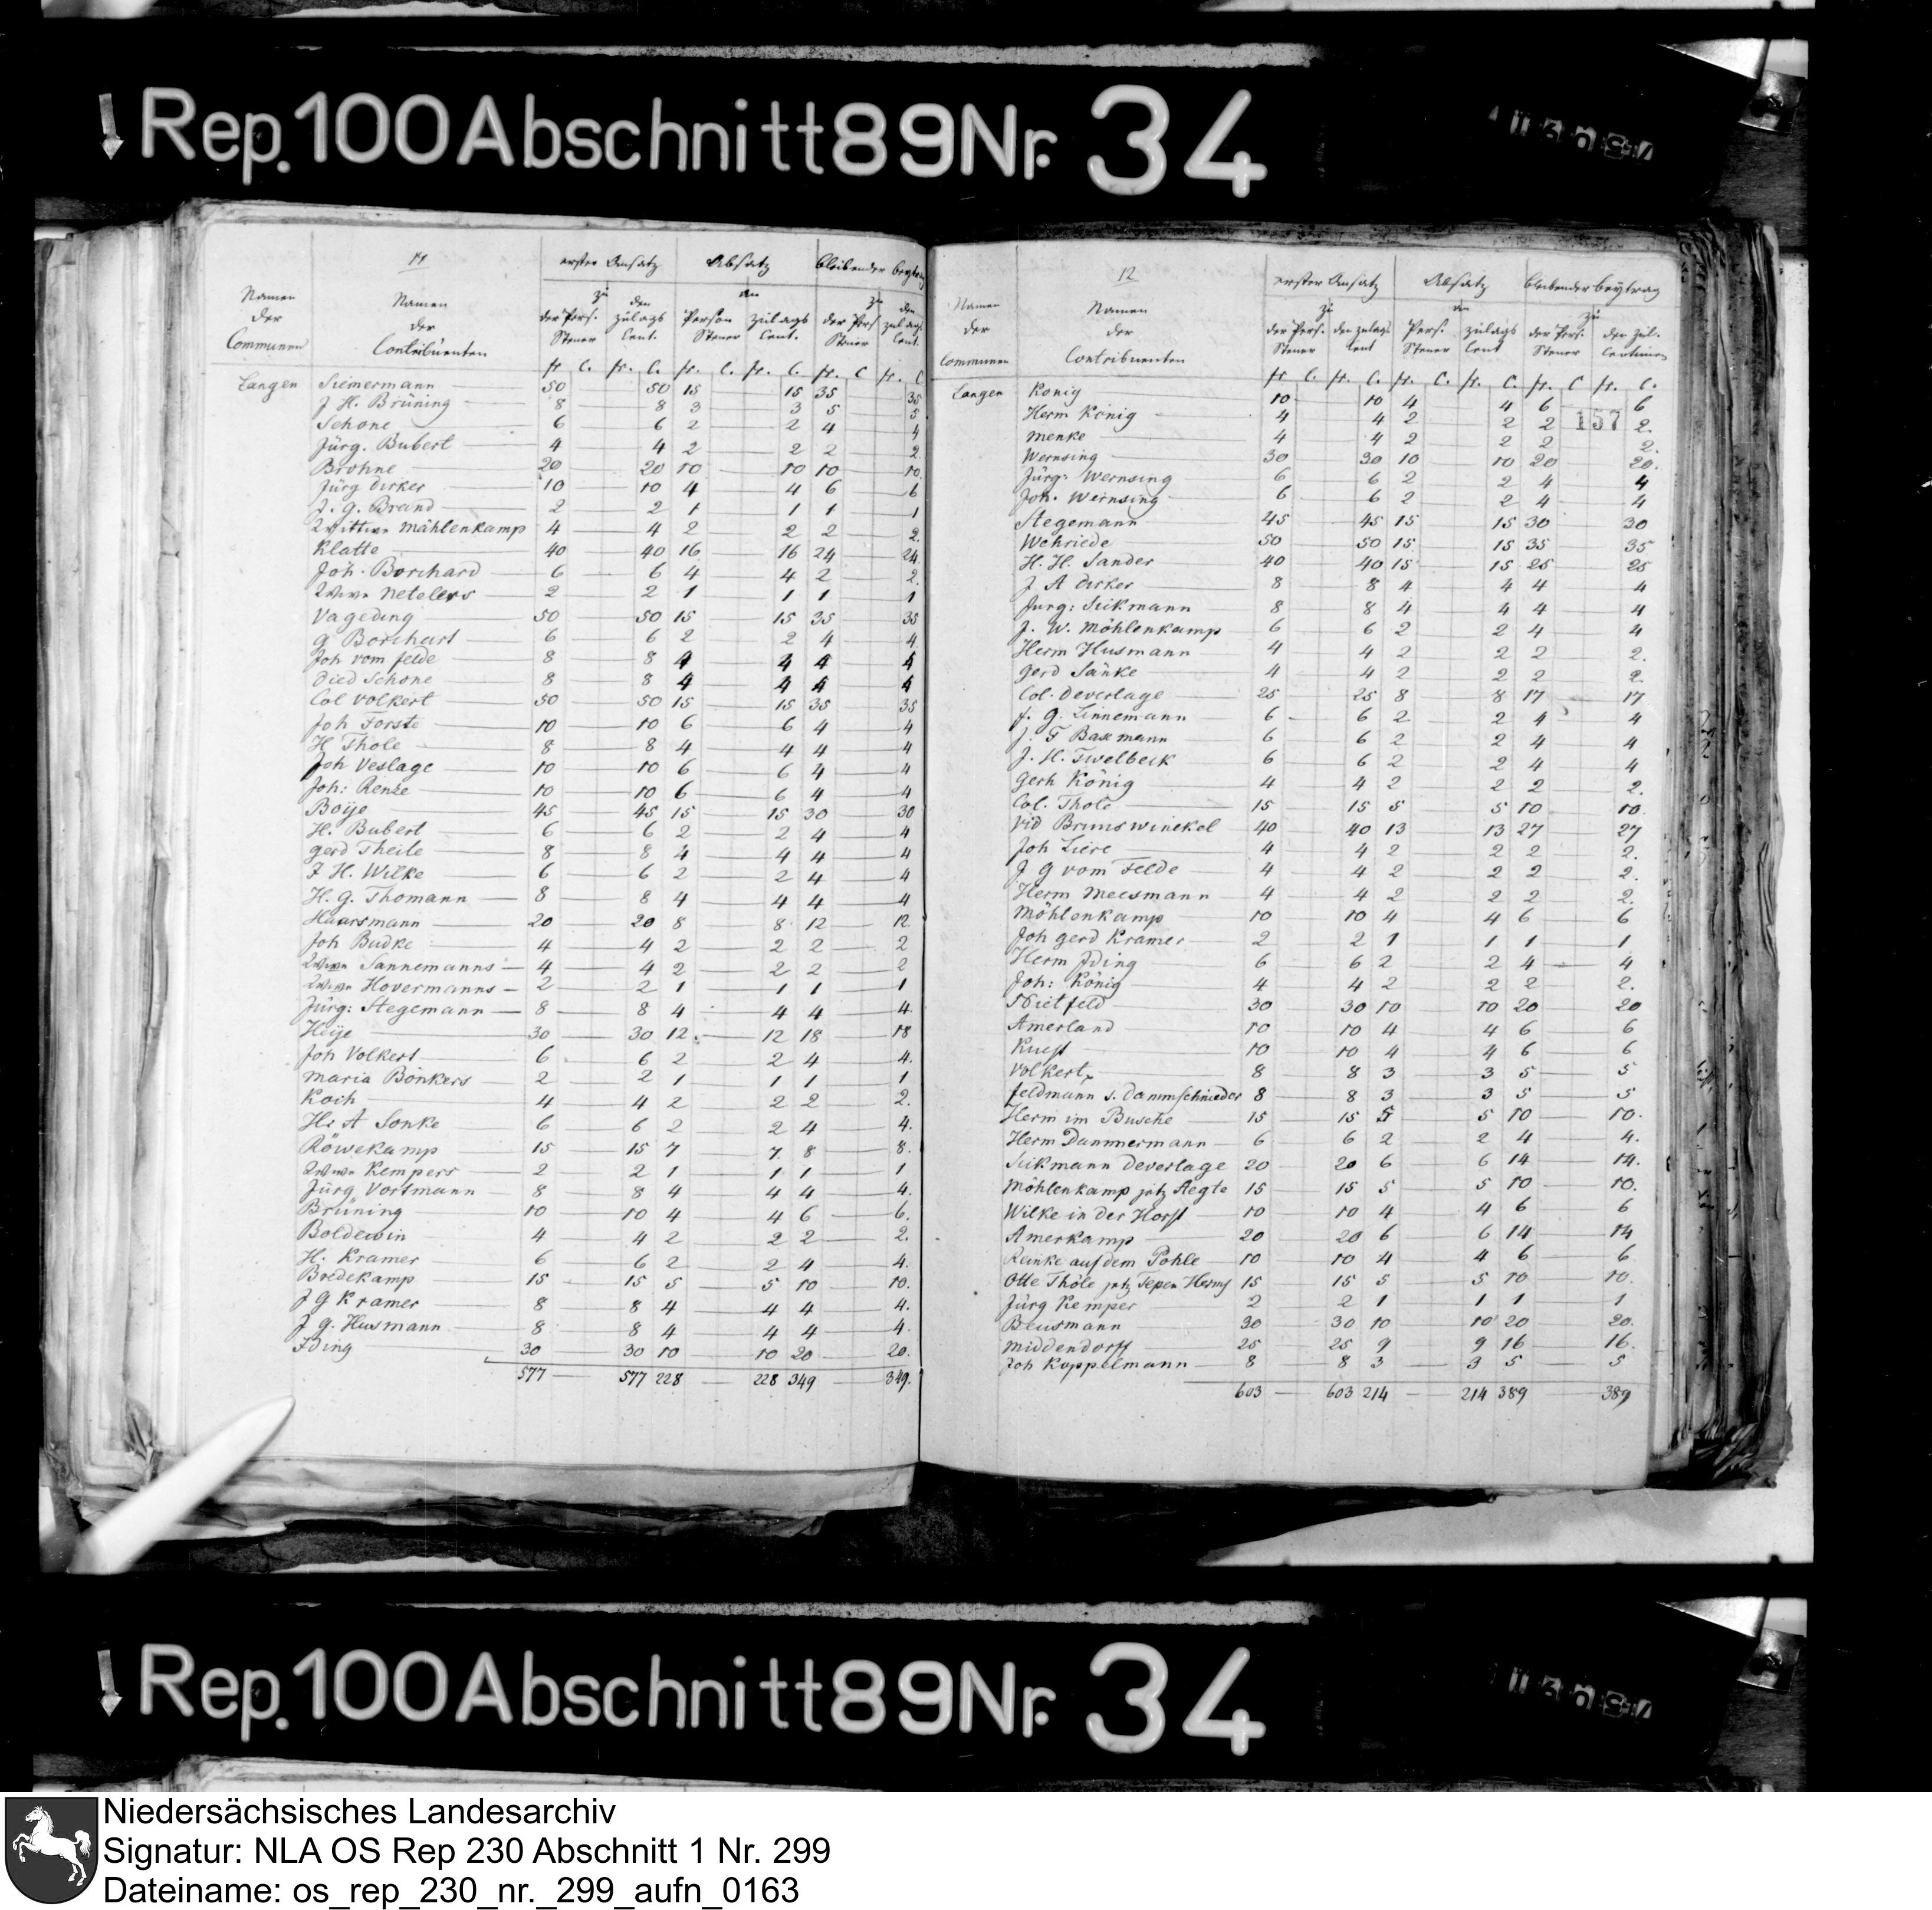 Rep. 100 Abschnitt 89 Nr. 34
11
erster Ansatz Absatz bleibender beytrag
Namen der Communen
Namen der Contribuenten
zu der Pers. Steuer den zulags Cent.
an Person Steuer zulags Cent.
zu der Pers Steuer den zulags Cent.
fr. C. fr. C. fr. C. fr. C. fr. C fr. C.
Langen Siemermann 50 50 15 15 35 35
J H. Brüning 8 8 3 3 5 5
Schone 6 6 2 2 4 4
Jürg. Bubert 4 4 2 2 2 2
Brohne 20 20 10 10 10 10
Jürg Dirker 10 10 4 4 6 6
J. g. Brand 2 2 1 1 1 1
Wittwe Mählenkamp 4 4 2 2 2 2.
Klatte 40 40 16 16 24 24
Joh. Borchard 6 6 4 4 2 2.
Wwe Netelers 2 2 1 1 1 1
Vageding 50 50 15 15 35 35
g Borchert 6 6 2 2 4 4
Joh vom felde 8 8 4 4 4 4
Died Schone 8 8 4 4 4 4
Col Volkert 50 50 15 15 35 35
Joh Forste 10 10 6 6 4 4
H Thole 8 8 4 4 4 4
Joh Veslage 10 10 6 6 4 4
Joh: Renze 10 10 6 6 4 4
Boije 45 45 15 15 30 30
H. Bubert 6 6 2 2 4 4
gerd Theile 8 8 4 4 4 4
J H. Wilke 6 6 2 2 4 4
H. g. Thomann 8 8 4 4 4 4
Haarsmann 20 20 8 8 12 12
Joh Budke 4 4 2 2 2 2
Wwe Sannemanns 4 4 2 2 2 2
Wwe Hovermanns 2 2 1 1 1 1
Jürg: Stegemann 8 8 4 4 4 4
Heije 30 30 12 12 18 18
Joh Volkert 6 6 2 2 4 4.
Maria Bönkers 2 2 1 1 1 1
Koch 4 4 2 2 2 2.
H: A Sonke 6 6 2 2 4 4.
Röwekamp 15 15 7 7 8 8.
Wwe Kempers 2 2 1 1 1 1
Jürg Vortmann 8 8 4 4 4 4.
Brüning 10 10 4 4 6 6.
Boldewin 4 4 2 2 2 2.
H. Kramer 6 6 2 2 4 4.
Bredekamp 15 15 5 5 10 10.
J g Kramer 8 8 4 4 4 4.
J g. Husmann 8 8 4 4 4 4
Iding 30 30 10 10 20 20.
577 577 228 228 349 349.
12
erster Ansatz Absatz bleibender beytrag
Namen der Communen
Namen der Contribuenten
zu der Pers. Steuer den zulags Cent
an Pers. Steuer zulags Cent
zu der Pers. Steuer den zul. Centimen
fr C. fr. C. fr. C. fr. C. fr. C fr. C.
Langen König 10 10 4 4 6 6
157
Herm König 4 4 2 2 2 2.
Menke 4 4 2 2 2 2.
Wernsing 30 30 10 10 20 20.
Jürg: Wernsing 6 6 2 2 4 4
Joh. Wernsing 6 6 2 2 4 4
Stegemann 45 45 15 15 30 30
Wehriede 50 50 15 15 35 35
H. H. Sander 40 40 15 15 25 25
J A Dirker 8 8 4 4 4 4
Jurg: Siikmann 8 8 4 4 4 4
J. W. Möhlenkamp 6 6 2 2 4 4
Herm Husmann 4 4 2 2 2 2.
gerd Sänke 4 4 2 2 2 2
Col. Deverlage 25 25 8 8 17 17
J. g. Linnemann 6 6 2 2 4 4
J. F Baxmann 6 6 2 2 4 4
J. H. Twelbeck 6 6 2 2 4 4
gerh König 4 4 2 2 2 2.
Col. Thole 15 15 5 5 10 10
Vid Brunswinckel 40 40 13 13 27 27
Joh Liere 4 4 2 2 2 2.
J g vom Felde 4 4 2 2 2 2.
Herm Meesmann 4 4 2 2 2 2.
Möhlenkamp 10 10 4 4 6 6
Joh gerd Kramer 2 2 1 1 1 1
Herm Iding 6 6 2 2 4 4
Joh: König 4 4 2 2 2 2.
Nietfeld 30 30 10 10 20 20
Amerland 10 10 4 4 6 6
Kuest 10 10 4 4 6 6
Volkert 8 8 3 3 5 5
Feldmann s. Dammschnieder 8 8 3 3 5 5
Herm im Busche 15 15 5 5 10 10.
Herm Dammermann 6 6 2 2 4 4.
Siikmann Deverlage 20 20 6 6 14 14.
Möhlenkamp jetz Aegte 15 15 5 5 10 10.
Wilke in der Horst 10 10 4 4 6 6
Amerkamp 20 20 6 6 14 14
Reinke auf dem Pohle 10 10 4 4 6 6
Otte Thöle jetz Tepen Herms 15 15 5 5 10 10.
Jürg Kemper 2 2 1 1 1 1
Beusmann 30 30 10 10 20 20.
Middendorff 25 25 9 9 16 16.
Joh Koppelmann 8 8 3 3 5 5
603 603 214 214 389 389
Rep. 100 Abschnitt 89 Nr. 34
Niedersächsisches Landesarchiv
Signatur: NLA OS Rep 230 Abschnitt 1 Nr. 299
Dateiname: os_rep_230_nr._299_aufn_0163